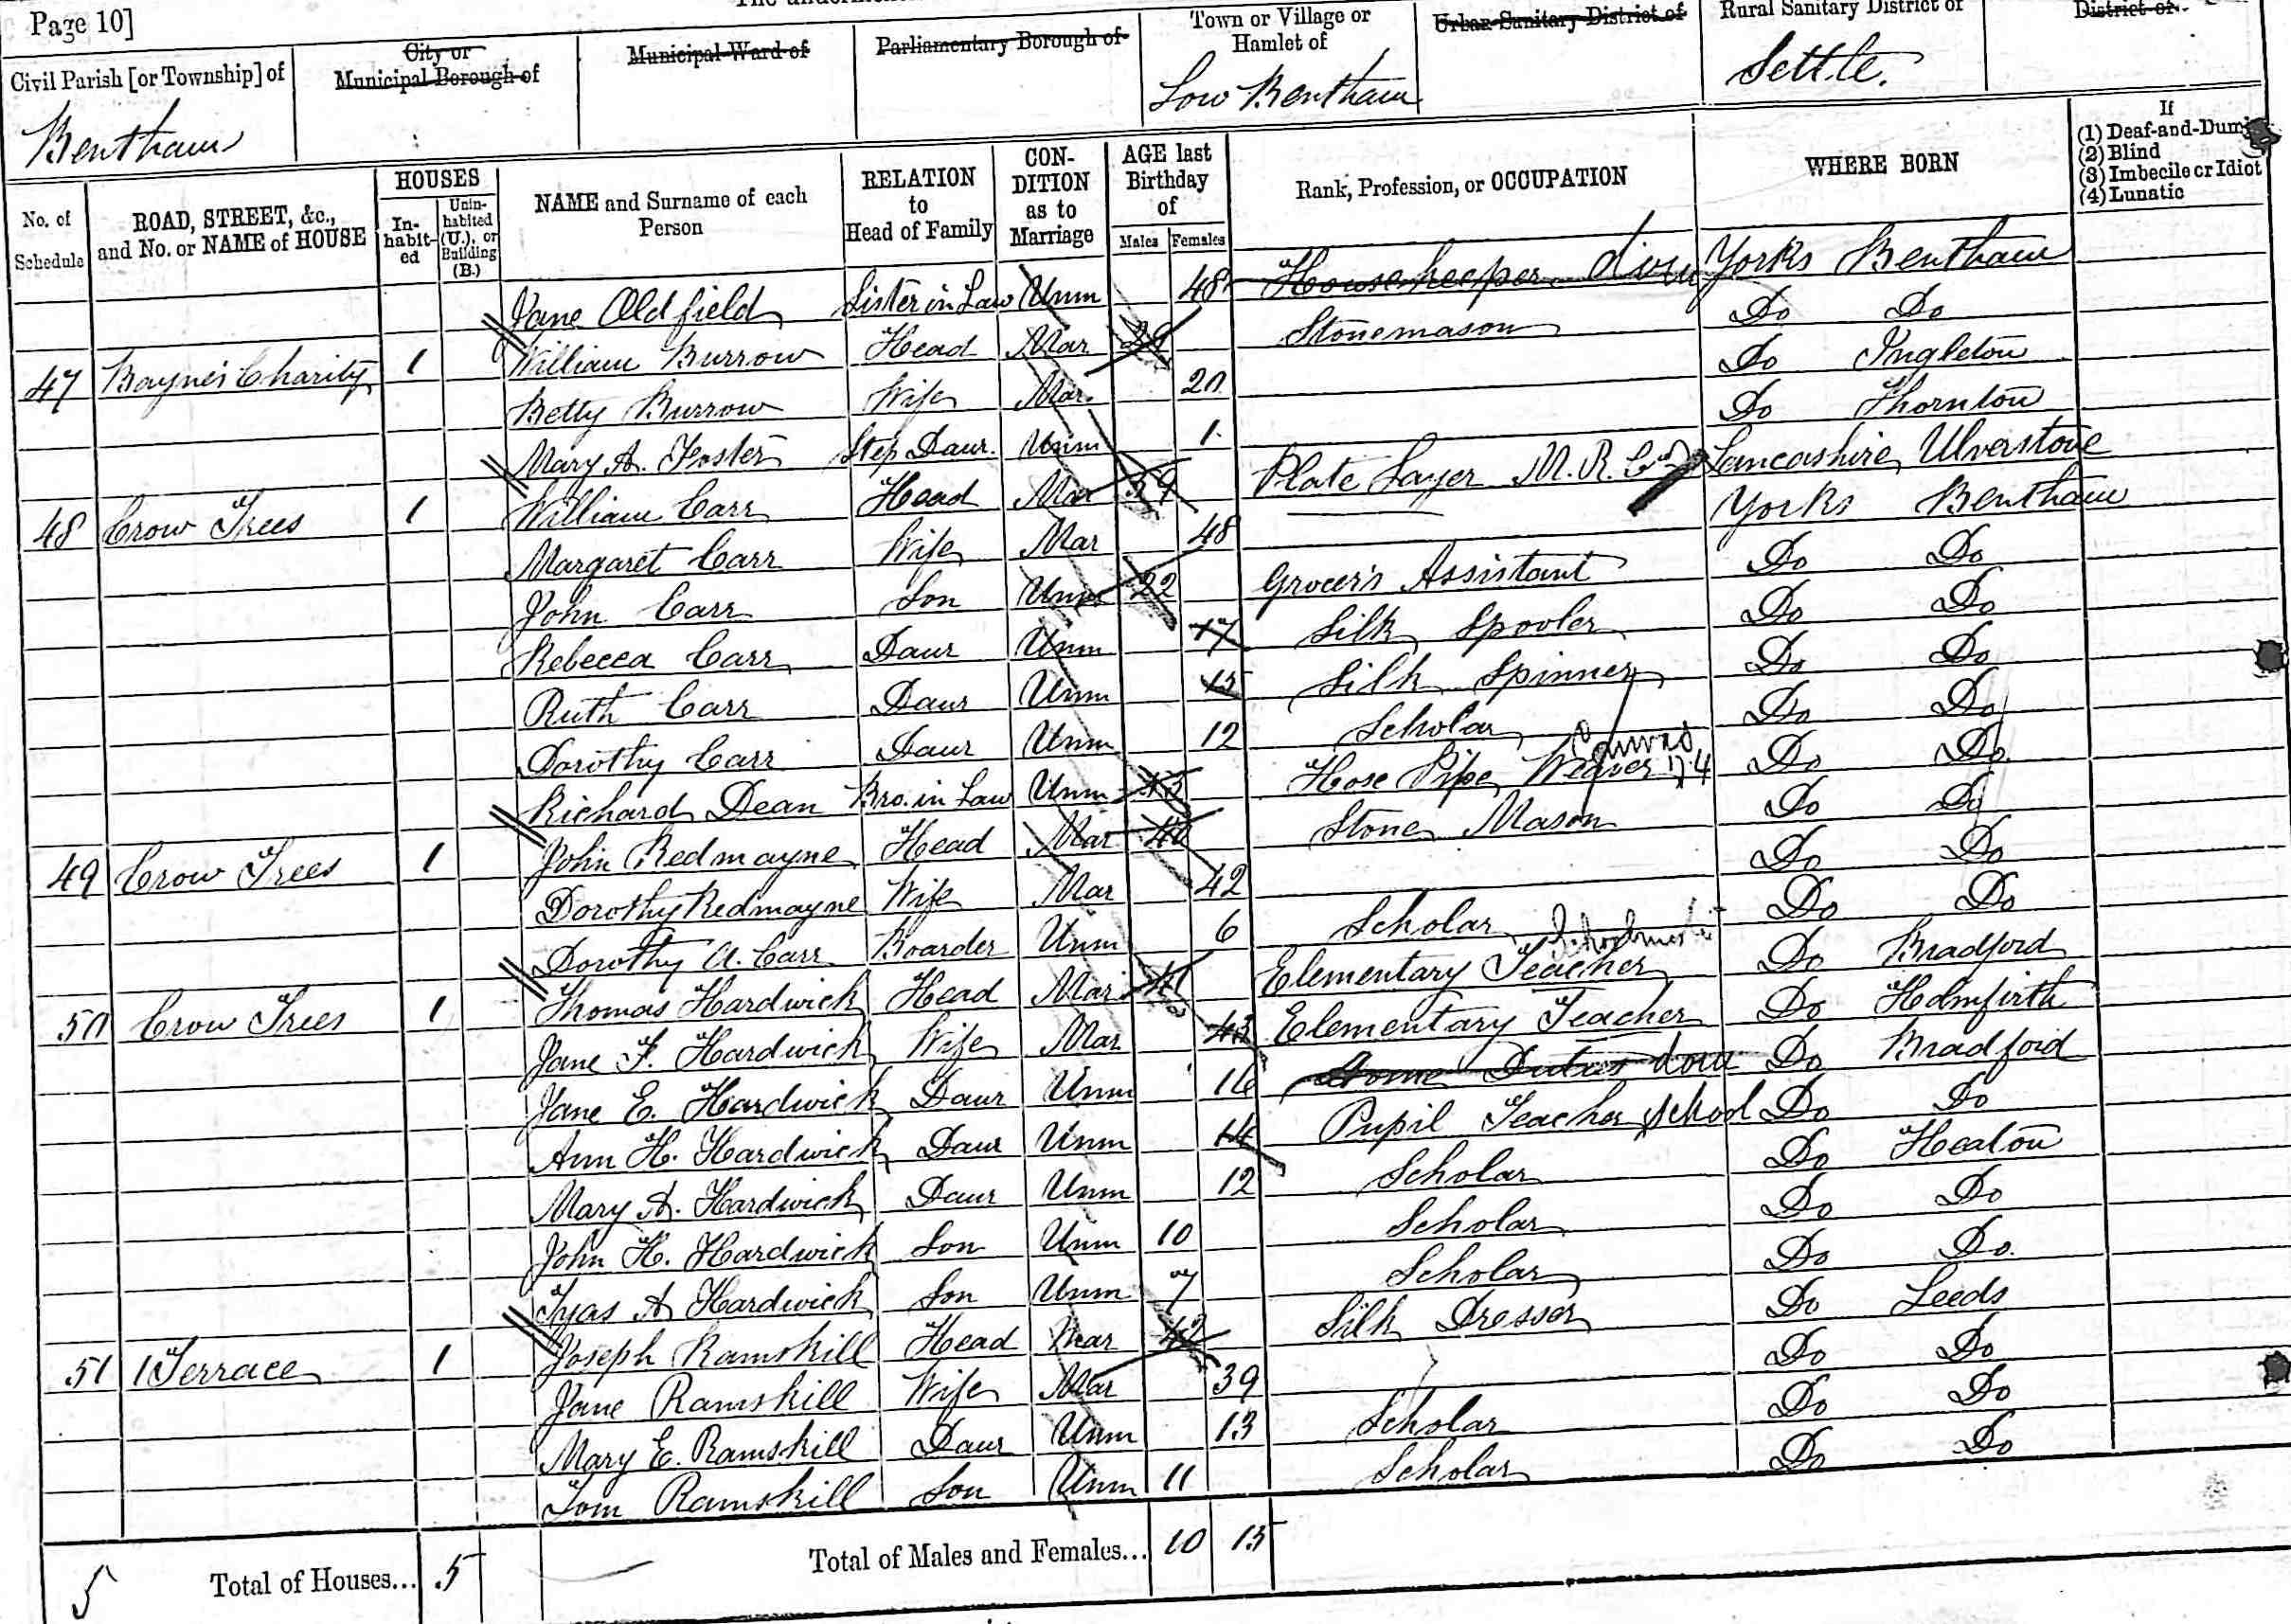 Page 10]
Civil Parish [or Township] of
Bentham
City or
Municipal Borough of
Municipal Ward of
Parliamentary Borough of
Town or Village or
Hamlet of
Low Bentham
Urban Sanitary District of
Rural Sanitary District of
Settle.
District of
No. of
Schedule
ROAD, STREET, &c.,
and No. or NAME of HOUSE
HOUSES
In-
habit-
ed
Unin-
habited
(U.), or
Building
(B.)
NAME and Surname of each
Person
RELATION
to
Head of Family
CON-
DITION
as to
Marriage
AGE last
Birthday
of
Males Females
Rank, Profession, or OCCUPATION
WHERE BORN
If
(1) Deaf-and-Dumb
(2) Blind
(3) Imbecile or Idiot
(4) Lunatic
Jane Oldfield Sister in Law Unm 48 Housekeeper Yorks Bentham
47 Bayne's Charity 1 William Burrow Head Mar Stonemason Do Do
Betty Burrow Wife Mar. 20 Do Ingleton
Mary A. Foster Step Daur. Unm 1 Do Thornton
48 Crow Trees 1 William Carr Head Mar 59 Plate Layer M. R. Co Lancashire Ulverstone
Margaret Carr Wife Mar 48 Yorks Bentham
John Carr Son Unm 22 Grocer's Assistant Do Do
Rebecca Carr Daur Unm 17 Silk Spooler Do Do
Ruth Carr Daur Unm 15 Silk Spinner Do Do
Dorothy Carr Daur Unm 12 Scholar Do Do
Richard Dean Bro. in Law Unm Hose Pipe Weaver Canvas Do Do
49 Crow Trees 1 John Redmayne Head Mar Stone Mason Do Do
Dorothy Redmayne Wife Mar 42 Do Do
Dorothy A. Carr Boarder Unm 6 Scholar Do Do
50 Crow Trees 1 Thomas Hardwick Head Mar 41 Elementary Teacher Do Bradford
Jane F. Hardwick Wife Mar 43 Elementary Teacher Do Holmfirth
Jane E. Hardwick Daur Unm 16 Home Duties Do Bradford
Ann H. Hardwick Daur Unm 14 Pupil Teacher school Do Do
Mary A. Hardwick Daur Unm 12 Scholar Do Heaton
John H. Hardwick Son Unm 10 Scholar Do Do
Tyas A Hardwick Son Unm 7 Scholar Do Do.
51 1 Terrace 1 Joseph Ramskill Head Mar 42 Silk Dresser Do Leeds
Jane Ramskill Wife Mar 39 Do Do
Mary E. Ramskill Daur Unm 13 Scholar Do Do
Tom Ramskill Son Unm 11 Scholar Do Do
5 Total of Houses... 5 Total of Males and Females... 10 15